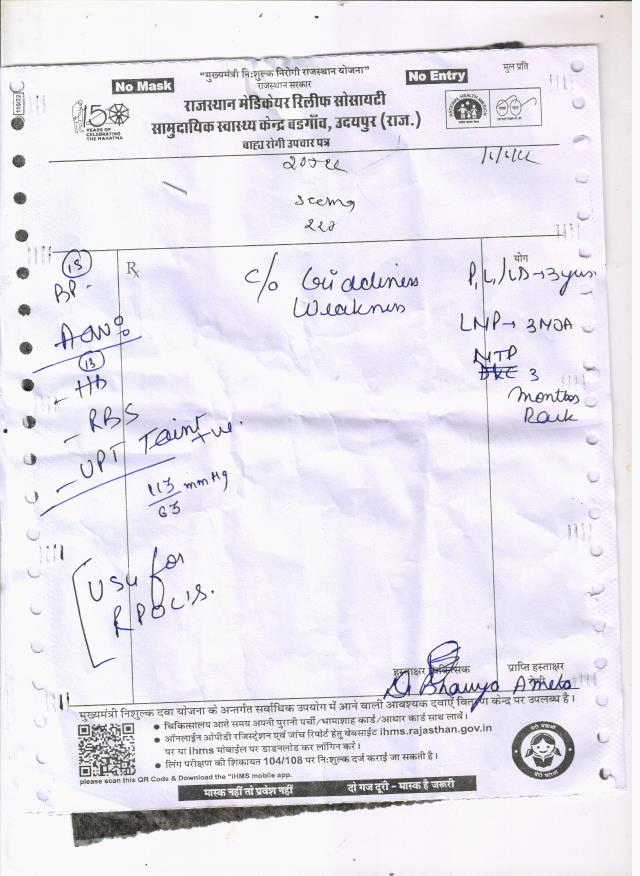 मुल प्रति
"मुख्यमंत्री निःशुल्क निरोगी राजस्थान योजना"
No Mask
No Entry
राजस्थान सरकार
राजस्थान मेडिकेयर रिलीफ सोसायटी
सामुदायिक स्वास्थ्य केन्द्र बडगाँव, उदयपुर (राज.)
बाह्य रोगी उपचार पत्र
150
YEARS OF
CELEBRATING
THE MAHATMA
NATIONAL HEALTH MISSION
Seema
Rx
योग
BP -
c/o Giddiness
Weakness
P2L1/LD → 3 yrs.
LMP → 3 MOA
MTP
3
Months
Back
Adv:
- Hb
- RBS
- UPT Faint +ve.
113
63
mmHg
USG for
RPOCIS.
हस्ताक्षर चिकित्सक
प्राप्ति हस्ताक्षर
रोगी
मुख्यमंत्री निशुल्क दवा योजना के अन्तर्गत सर्वाधिक उपयोग में आने वाली आवश्यक दवाएँ वितरण केन्द्र पर उपलब्ध है।
• चिकित्सालय आते समय अपनी पुरानी पर्ची/भामाशाह कार्ड/आधार कार्ड साथ लावें।
• ऑनलाईन ओपीडी रजिस्ट्रेशन एवं जांच रिपोर्ट हेतु वेबसाईट ihms.rajasthan.gov.in
पर या ihms मोबाईल पर डाउनलोड कर लॉगिन करे।
• लिंग परीक्षण की शिकायत 104/108 पर निःशुल्क दर्ज कराई जा सकती है।
please scan this QR Code & Download the "IHMS mobile app.
मास्क नहीं तो प्रवेश नहीं
दो गज दूरी - मास्क है जरूरी